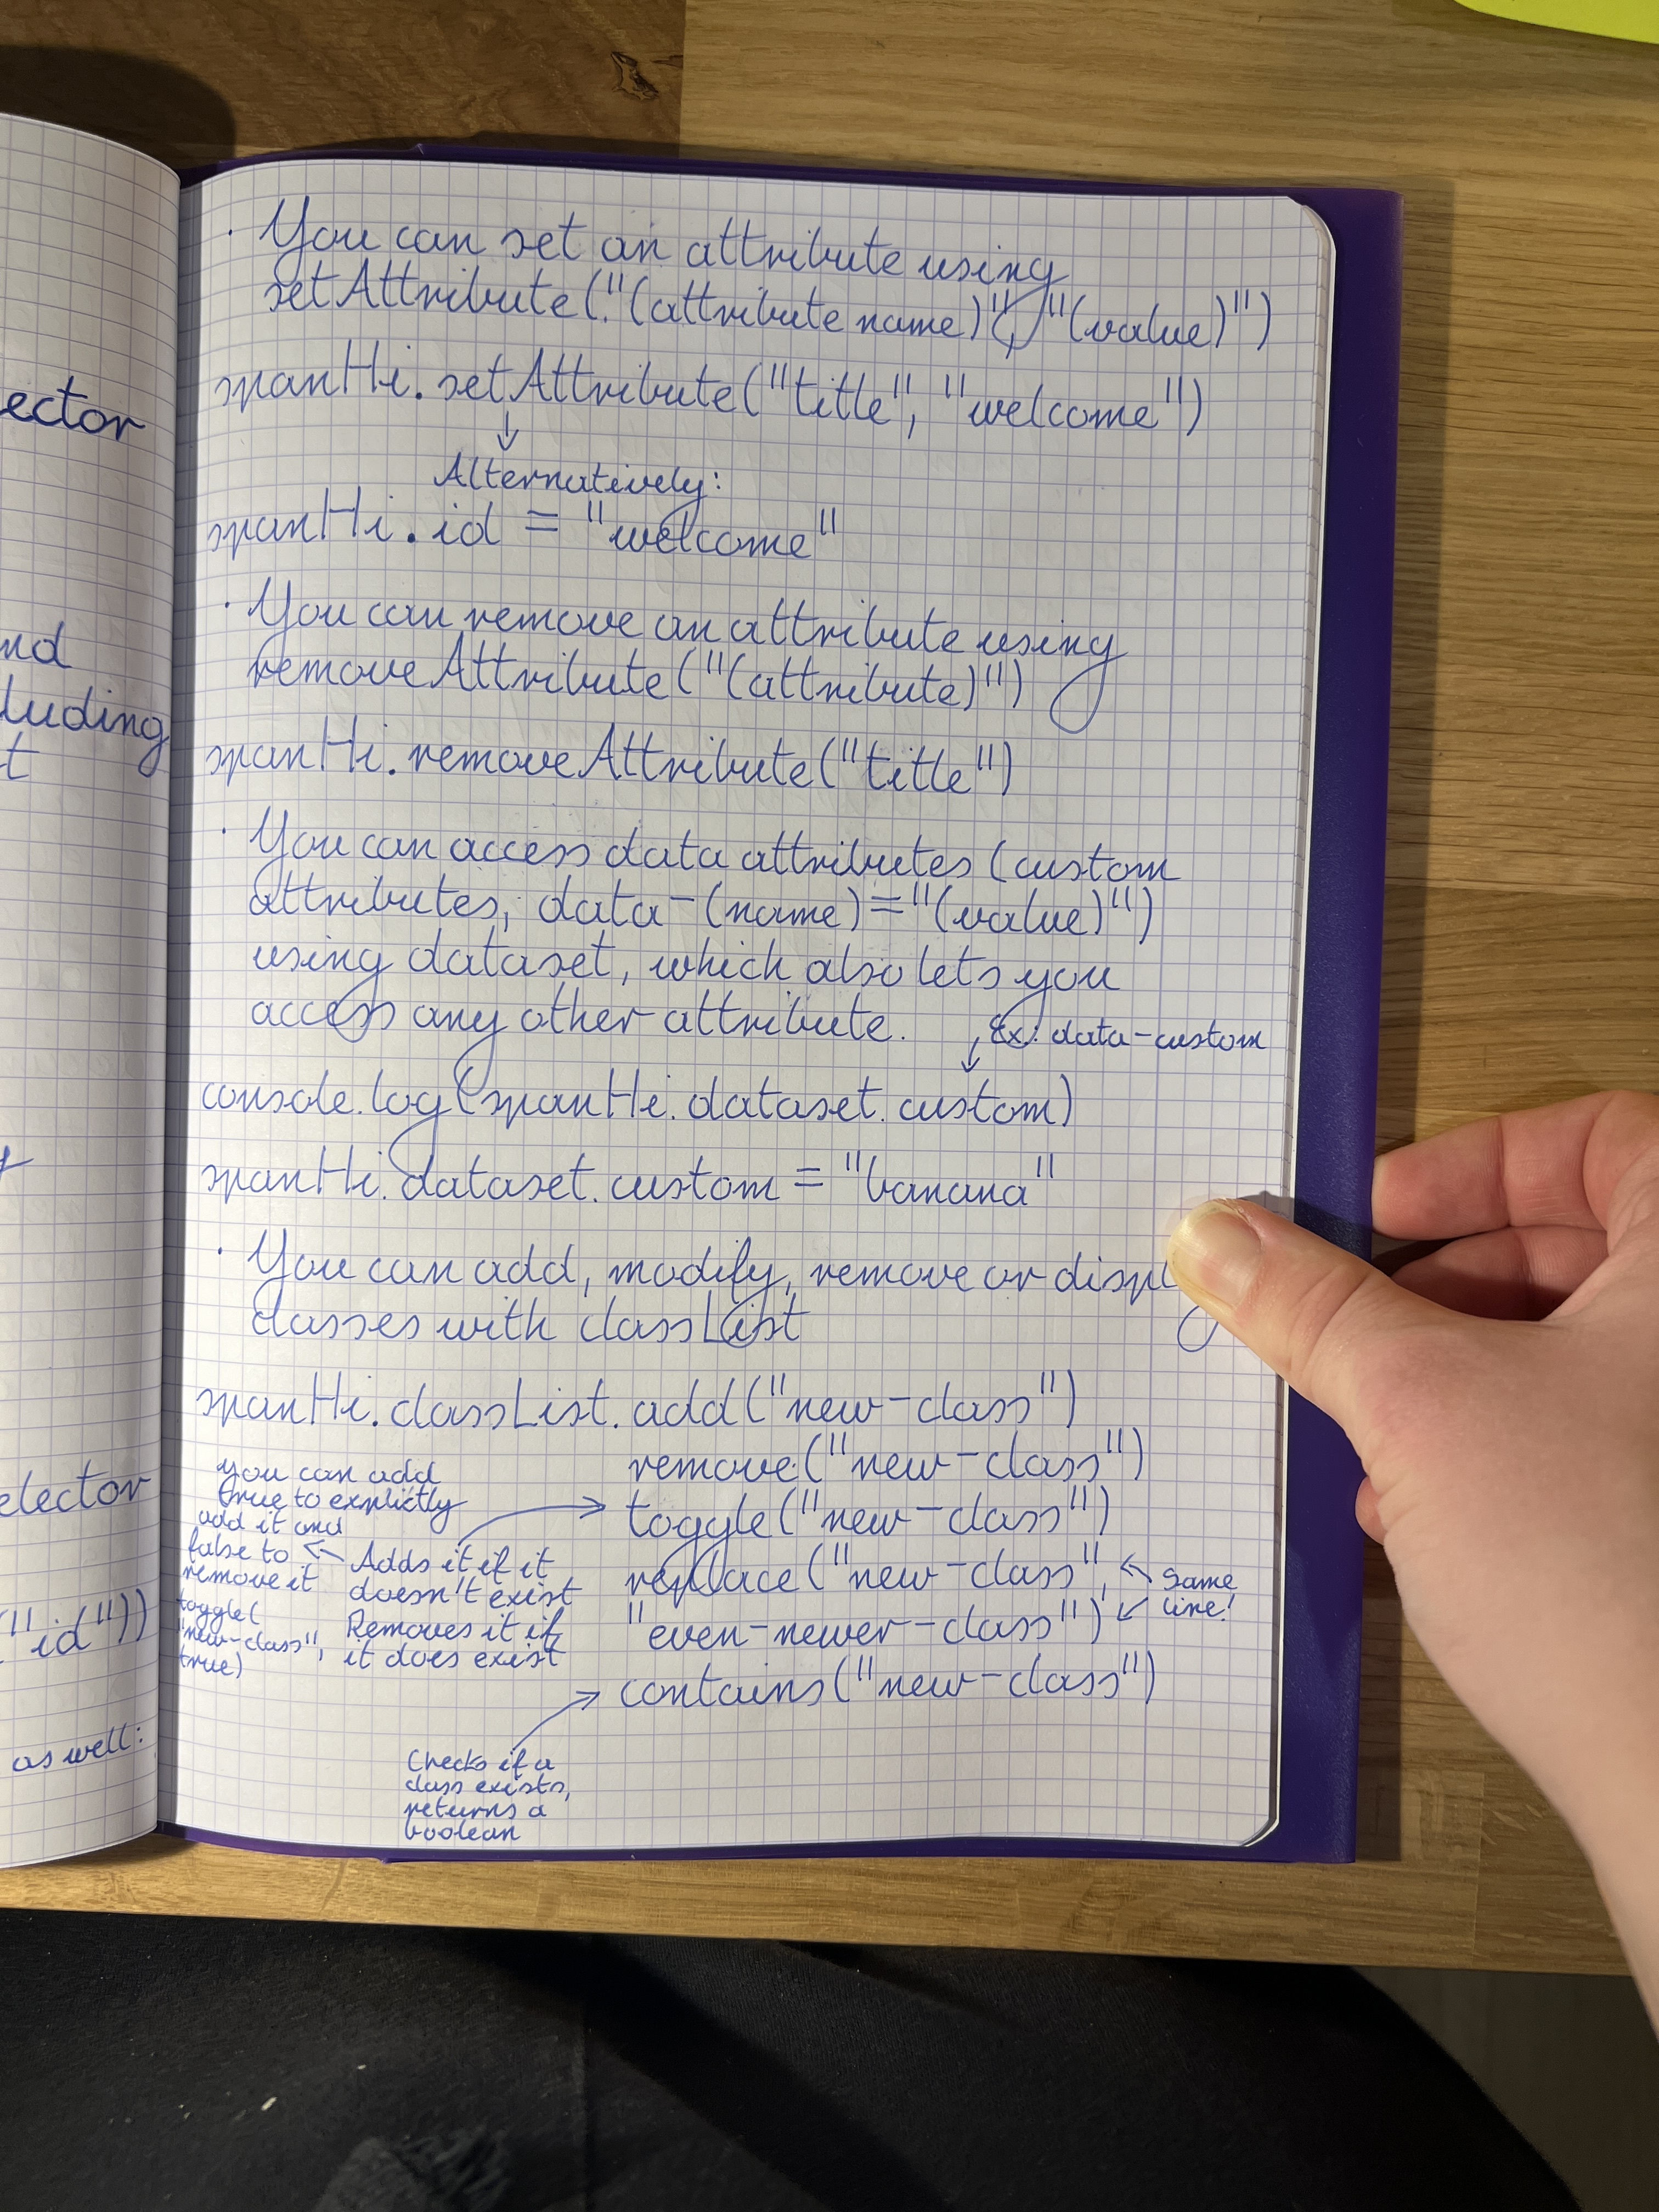 ector
nd
luding
t
elector
"id"))
as well:
· You can set an attribute using
setAttribute("(attribute name)", "(value)")
spanHi.setAttribute("title", "welcome")
↓
Alternatively:
spanHi.id = "welcome"
· You can remove an attribute using
removeAttribute("(attribute)")
spanHi.removeAttribute("title")
· You can access data attributes (custom
attributes, data-(name)="(value)")
using dataset, which also lets you
access any other attribute.
↓ Ex: data-custom
console.log(spanHi.dataset.custom)
spanHi.dataset.custom = "banana"
· You can add, modify, remove or displ
classes with classList
spanHi.classList.add("new-class")
remove("new-class")
toggle("new-class")
replace("new-class",
"even-newer-class")
same
line!
contains("new-class")
Adds it if it
doesn't exist
Removes it if
it does exist
you can add
true to explictly
add it and
false to
remove it
toggle(
"new-class",
true)
Checks if a
class exists,
returns a
boolean